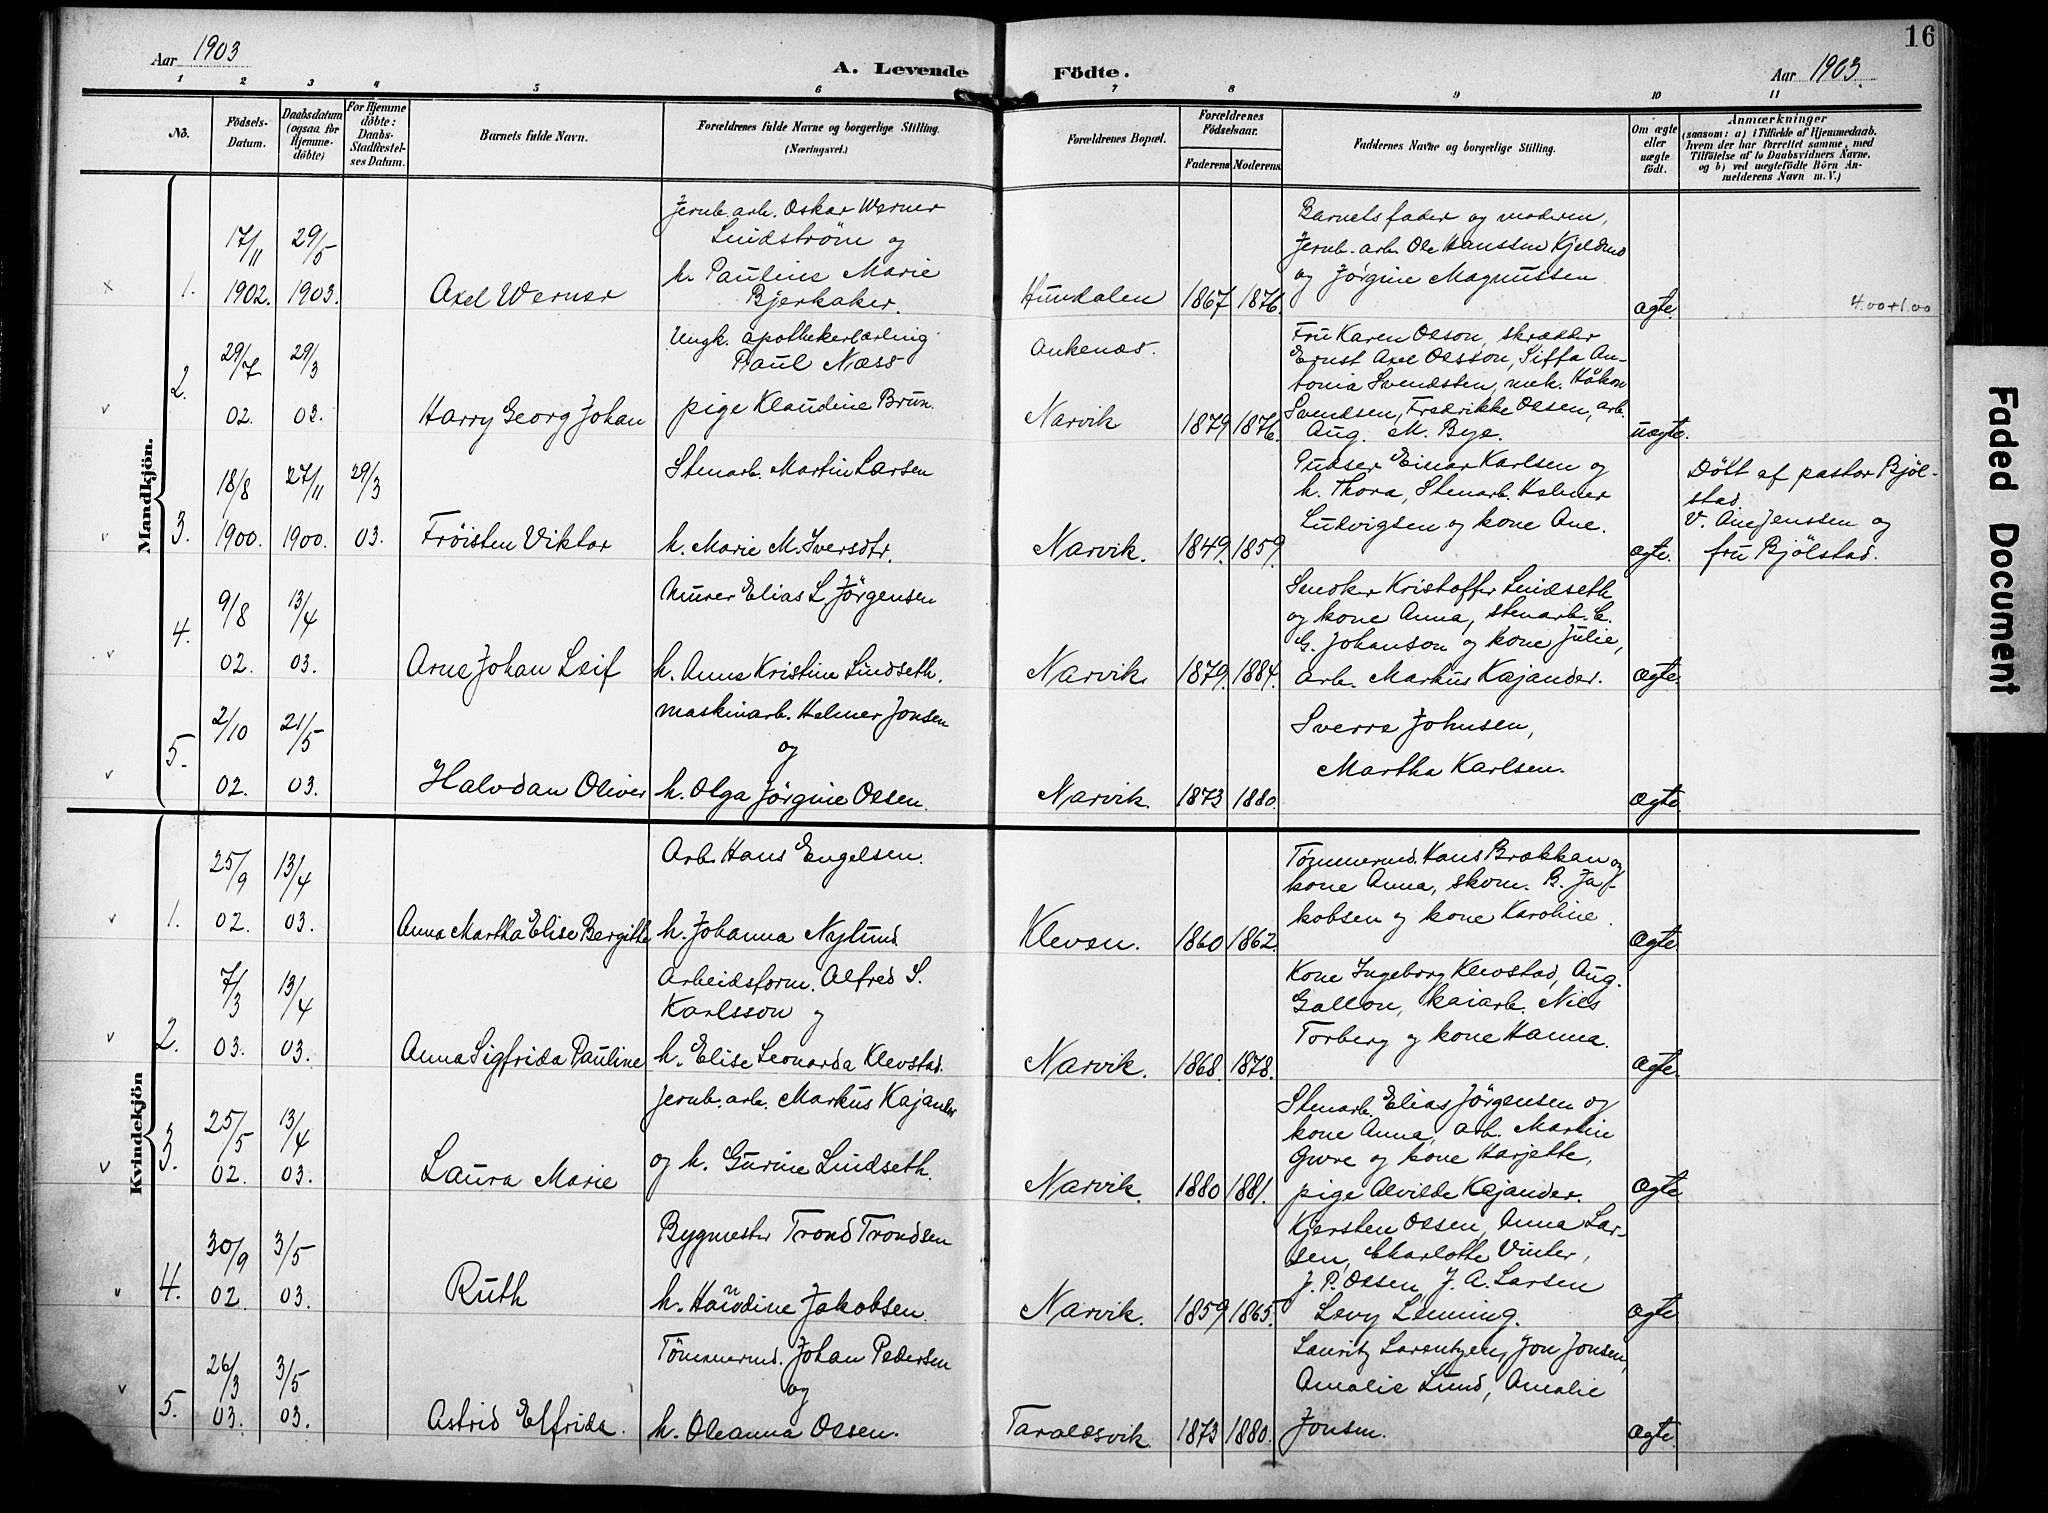 16
Aar 1903
A. Levende Födte.
Aar 1903.
1 2 3 4 5 6 7 8 9 10 11
No.
Födsels-Datum.
Daabsdatum (ogsaa for Hjemme-döbte)
For Hjemme döbte: Daabs-Stadfæstel-ses Datum.
Barnets fulde Navn.
Forældrenes fulde Navne og borgerlige Stilling.
(Næringsvei.)
Forældrenes Bopæl.
Forældrenes Födselsaar.
Faderens Moderens
Faddernes Navne og borgerlige Stilling.
Om ægte eller uægte födt.
Anmærkninger
(saasom: a) i Tilfælde af Hjemmedaab,
hvem der har forrettet samme, med
Tilföielse af to Daabsvidners Navne,
og b) ved uægtefödte Börn An-
melderens Navn m. V.)
Mandkjön.
1.
17/11 1902.
29/5 1903.
Axel Werner
Jernb. arb. Oskar Werner
Lindström og
h. Pauline Marie
Bjerkaker.
Hundalen
1867
1876.
Barnets fader og moderen,
Jernb. arb. Ole Hanssen
og Jörgine Magnussen
ægte.
4.00+1.00
2.
29/7 02.
29/3 03.
Harry Georg Johan
Ungk. apothekerlærling
Paul Næss
pige Klaudine Brun.
Ankenæs.
Narvik
1879
1876.
Fru Karen Olson, skrædder
Ernst Axel Olsson, Siffa An-
tonia Svendsten, mek. Håkon
Svendsen, Fredrikke Olsen, arb.
Aug. M. Bye.
uægte.
3.
18/8 1900.
27/11 1900.
29/3 03.
Fröisten Viktor
Stenarb. Martin Larsen
h. Marie M. Iversdtr.
Narvik.
1849.
1859.
Pudser Einar Karlsen og
h. Thora, Stenarb. Helmer
Ludvigsen og kone Ane.
ægte.
Döbt af pastor Bjöl-
stad.
V. Ane Jenssen og
fru Bjölstad.
4.
9/8 02.
13/4 03.
Arne Johan Leif
Murer Elias L. Jörgensen
h. Anna Kristine Lindseth.
Narvik.
1879.
1884.
Snedker Kristoffer Lindseth
og kone Anna, stenarb. C.
G. Johanson og kone Julie,
arb. Markus Kajander.
Ægte.
5.
2/10 02.
21/5 03.
Halvdan Oliver
Maskinarb. Helmer Jonsen
og
h. Olga Jörgine Olsen.
Narvik.
1873
1880.
Sverre Johnsen,
Martha Karlsen.
Ægte.
Kvindekjön
1.
25/9 02.
13/4 03.
Anna Martha Elise Bergitte
Arb. Hans Engelsen.
h. Johanna Nylund
Kleven.
1860
1862.
Tömmermd. Hans Brækkan og
kone Anna, skom. B. Ja-
kobsen og kone Karoline.
Ægte.
2.
7/3 03.
13/4 03.
Anna Sigfrida Pauline
Arbeidsform. Alfred S.
Karlsson og
h. Elise Leonarda Klevstad.
Narvik.
1868.
1878.
Kone Ingeborg Klevstad, Aug.
Gallon, kaiarb. Nils
Torberg og kone Hanna.
Ægte.
3.
25/5 02.
13/4 03.
Laura Marie
Jernb. arb. Markus Kajander
og h. Gurine Lindseth.
Narvik.
1880
1881.
Stenarb. Elias Jörgensen og
kone Anna, arb. Martin
og kone Harjette,
pige Alvilde Kajander.
Ægte
4.
30/9 02.
3/5 03.
Ruth
Bygmester Trond Trondsen
h. Handine Jakobsen.
Narvik.
1859
1865.
Kjersten Olsen, Anna Lar-
sen, Charlotte Vinter,
J. P. Olsen, J. A. Larsen
Levy Lenning.
Ægte
5.
26/3 03.
3/5 03.
Astrid Elfrida.
Tömmermd. Johan Pedersen
og
h. Oleanna Olsen.
Taraldsvik.
1873
1880.
Lauritz Jon Jonsen,
Amalie Lund, Amalie
Jonsen.
Ægte.
Faded Document